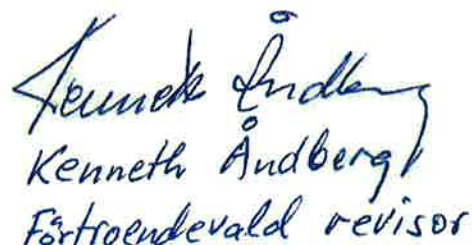 Kenneth Åndberg
Kenneth Åndberg
Förtroendevald revisor